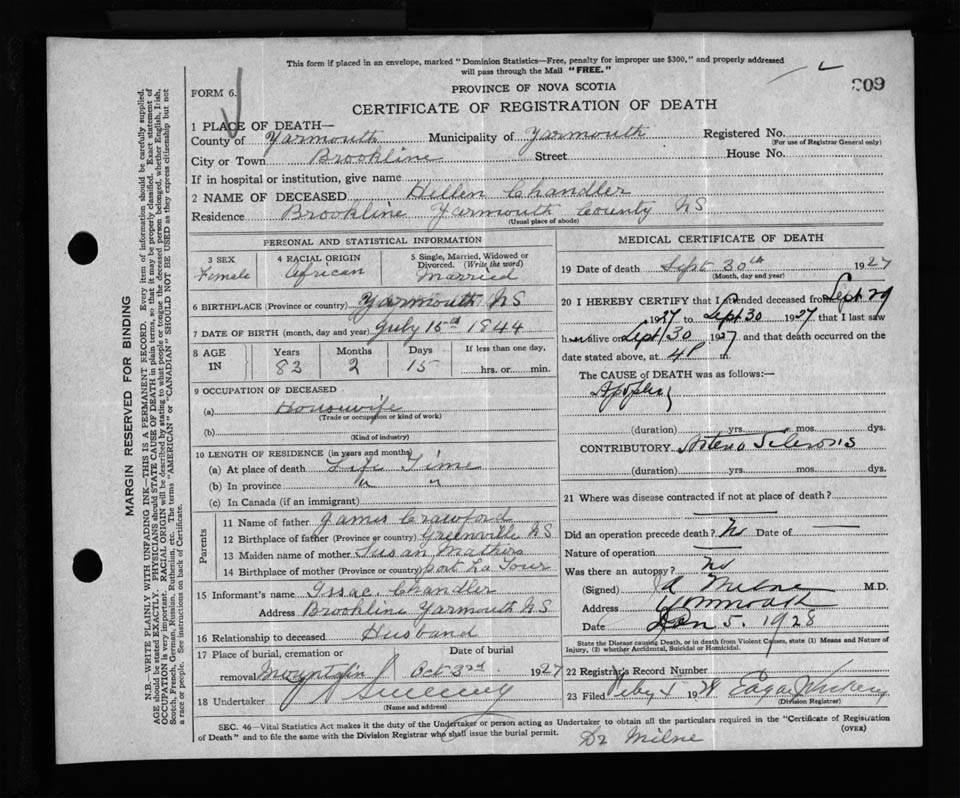 This form if placed in an envelope, marked "Dominion Statistics—Free, penalty for improper use $300," and properly addressed
will pass through the Mail "FREE."
PROVINCE OF NOVA SCOTIA
FORM 6.
CERTIFICATE OF REGISTRATION OF DEATH
909
MARGIN RESERVED FOR BINDING
N.B.—WRITE PLAINLY WITH UNFADING INK—THIS IS A PERMANENT RECORD. Every item of information should be carefully supplied.
AGE should be stated EXACTLY. PHYSICIANS should STATE CAUSE OF DEATH in plain terms, so that it may be properly classified. Exact statement of
OCCUPATION is very important. RACIAL ORIGIN will be described by stating to what people or tongue the deceased person belonged, whether English, Irish,
Scotch, French, German, Russian, Ruthenian, etc. The terms "AMERICAN" or "CANADIAN" SHOULD NOT BE USED as they express citizenship but not
a race or people. See instructions on back of Certificate.
1 PLACE OF DEATH—
County of Yarmouth Municipality of Yarmouth Registered No.
(For use of Registrar General only)
City or Town Brookline Street House No.
If in hospital or institution, give name
2 NAME OF DECEASED Hellen Chandler
Residence Brookline Yarmouth County NS
(Usual place of abode)
PERSONAL AND STATISTICAL INFORMATION
3 SEX Female
4 RACIAL ORIGIN African
5 Single, Married, Widowed or
Divorced. (Write the word)
Married
6 BIRTHPLACE (Province or country) Yarmouth NS
7 DATE OF BIRTH (month, day and year) July 15th 1844
8 AGE IN Years 83 Months 2 Days 15
If less than one day,
hrs. or min.
9 OCCUPATION OF DECEASED
(a) Housewife
(Trade or occupation or kind of work)
(b)
(Kind of industry)
10 LENGTH OF RESIDENCE (in years and months)
(a) At place of death Life Time
(b) In province " "
(c) In Canada (if an immigrant)
Parents
11 Name of father James Crawford
12 Birthplace of father (Province or country) Greenville NS
13 Maiden name of mother Susan
14 Birthplace of mother (Province or country) Port La Tour
15 Informant's name Issac Chandler
Address Brookline Yarmouth NS
16 Relationship to deceased Husband
17 Place of burial, cremation or Date of burial
removal Mountain Oct 3rd 1927
18 Undertaker Sweeney
(Name and address)
MEDICAL CERTIFICATE OF DEATH
19 Date of death Sept 30th 1927
(Month, day and year)
20 I HEREBY CERTIFY that I attended deceased from Sept 29
1927 to Sept 30 1927 that I last saw
her alive on Sept 30 1927 and that death occurred on the
date stated above, at 4P m.
The CAUSE of DEATH was as follows:—
Apoplexy
(duration) yrs. mos. dys.
CONTRIBUTORY Arterio Sclerosis
(duration) yrs. mos. dys.
21 Where was disease contracted if not at place of death?
Did an operation precede death? No Date of
Nature of operation
Was there an autopsy? No
(Signed) Milne M.D.
Address Yarmouth
Date Jan 5. 1928
State the Disease causing Death, or in death from Violent Causes, state (1) Means and Nature of
Injury, (2) whether Accidental, Suicidal or Homicidal.
22 Registrar's Record Number
23 Filed Feby 1928 Edgar
(Division Registrar)
SEC. 46—Vital Statistics Act makes it the duty of the Undertaker or person acting as Undertaker to obtain all the particulars required in the "Certificate of Registration
of Death" and to file the same with the Division Registrar who shall issue the burial permit.
(OVER)
Dr Milne